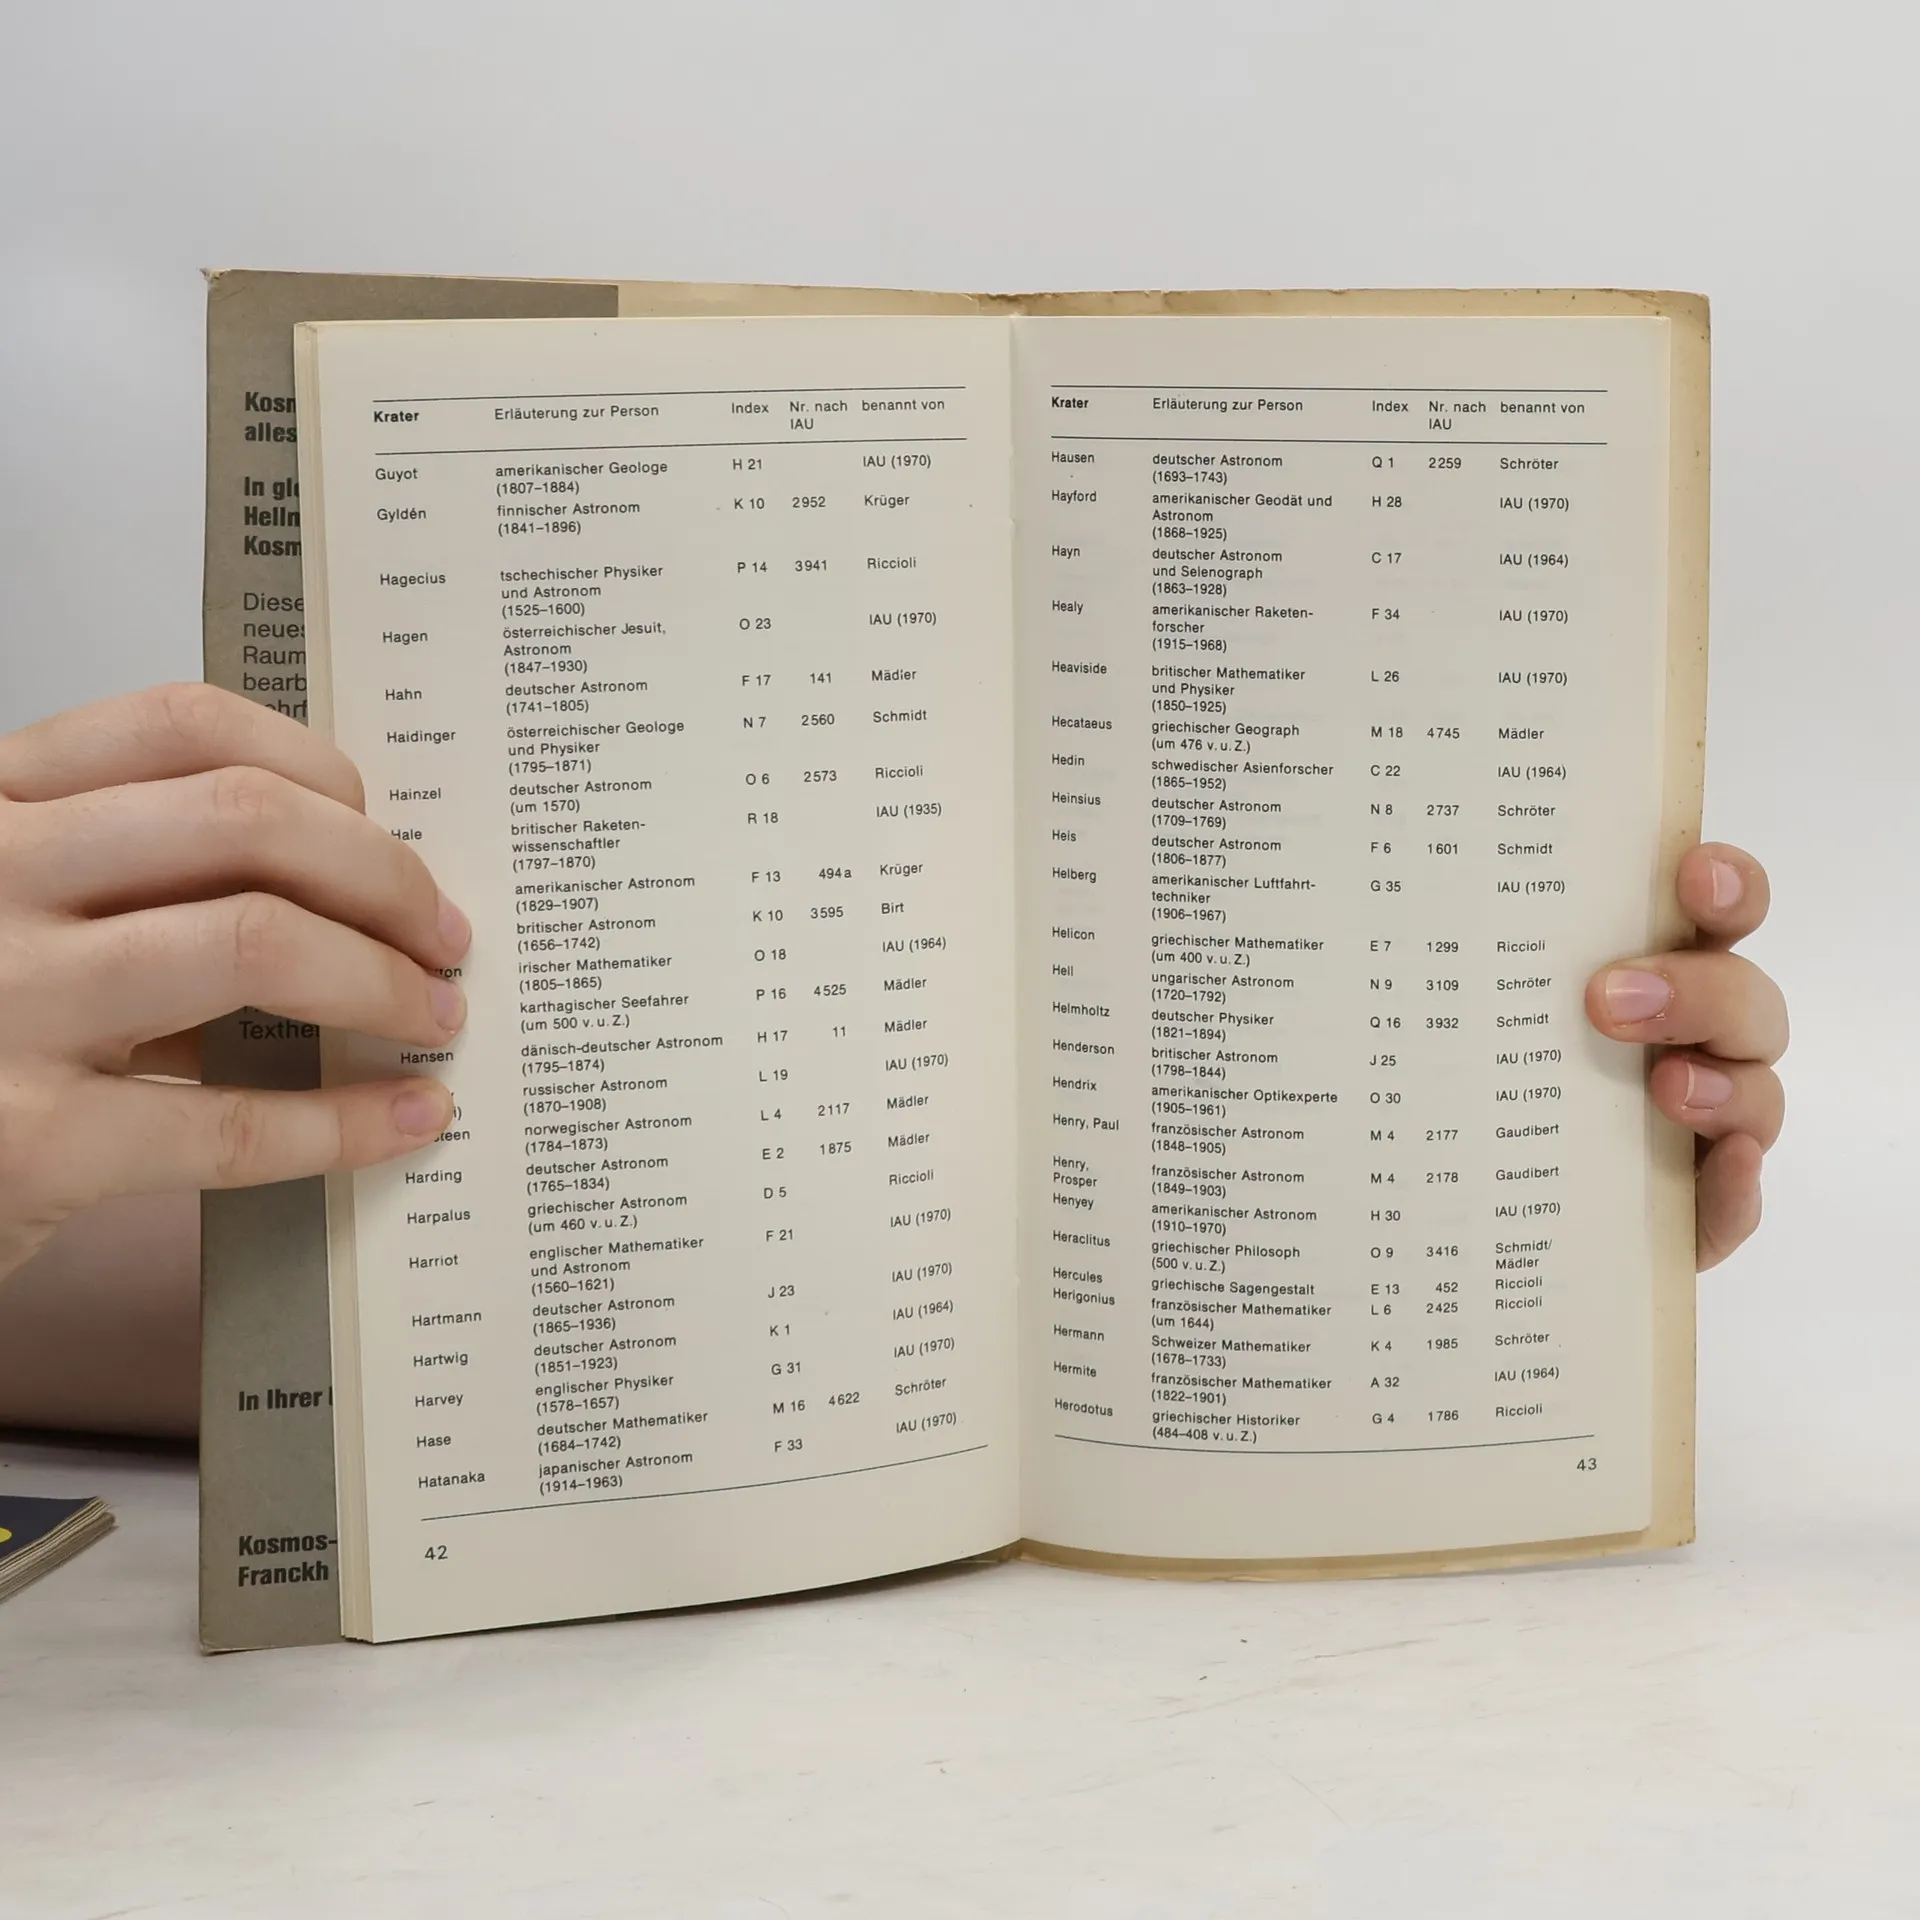 Kosm
alles
In gle
Hellm
Kosm
Diese
neues
Raum
bearb
Texthe
In Ihrer
Kosmos-
Franckh
Krater Erläuterung zur Person Index Nr. nach benannt von
IAU
Guyot amerikanischer Geologe H 21 IAU (1970)
(1807–1884)
Gyldén finnischer Astronom K 10 2952 Krüger
(1841–1896)
Hagecius tschechischer Physiker P 14 3941 Riccioli
und Astronom
(1525–1600)
Hagen österreichischer Jesuit, O 23 IAU (1970)
Astronom
(1847–1930)
Hahn deutscher Astronom F 17 141 Mädler
(1741–1805)
Haidinger österreichischer Geologe N 7 2560 Schmidt
und Physiker
(1795–1871)
Hainzel deutscher Astronom O 6 2573 Riccioli
(um 1570)
Hale britischer Raketen- R 18 IAU (1935)
wissenschaftler
(1797–1870)
amerikanischer Astronom F 13 494a Krüger
(1829–1907)
britischer Astronom K 10 3595 Birt
(1656–1742)
ton irischer Mathematiker O 18 IAU (1964)
(1805–1865)
karthagischer Seefahrer P 16 4525 Mädler
(um 500 v. u. Z.)
Hansen dänisch-deutscher Astronom H 17 11 Mädler
(1795–1874)
russischer Astronom L 19 IAU (1970)
i) (1870–1908)
steen norwegischer Astronom L 4 2117 Mädler
(1784–1873)
Harding deutscher Astronom E 2 1875 Mädler
(1765–1834)
Harpalus griechischer Astronom D 5 Riccioli
(um 460 v. u. Z.)
Harriot englischer Mathematiker F 21 IAU (1970)
und Astronom
(1560–1621)
Hartmann deutscher Astronom J 23 IAU (1970)
(1865–1936)
Hartwig deutscher Astronom K 1 IAU (1964)
(1851–1923)
Harvey englischer Physiker G 31 IAU (1970)
(1578–1657)
Hase deutscher Mathematiker M 16 4622 Schröter
(1684–1742)
Hatanaka japanischer Astronom F 33 IAU (1970)
(1914–1963)
42
Krater Erläuterung zur Person Index Nr. nach benannt von
IAU
Hausen deutscher Astronom Q 1 2259 Schröter
(1693–1743)
Hayford amerikanischer Geodät und H 28 IAU (1970)
Astronom
(1868–1925)
Hayn deutscher Astronom C 17 IAU (1964)
und Selenograph
(1863–1928)
Healy amerikanischer Raketen- F 34 IAU (1970)
forscher
(1915–1968)
Heaviside britischer Mathematiker L 26 IAU (1970)
und Physiker
(1850–1925)
Hecataeus griechischer Geograph M 18 4745 Mädler
(um 476 v. u. Z.)
Hedin schwedischer Asienforscher C 22 IAU (1964)
(1865–1952)
Heinsius deutscher Astronom N 8 2737 Schröter
(1709–1769)
Heis deutscher Astronom F 6 1601 Schmidt
(1806–1877)
Helberg amerikanischer Luftfahrt- G 35 IAU (1970)
techniker
(1906–1967)
Helicon griechischer Mathematiker E 7 1299 Riccioli
(um 400 v. u. Z.)
Hell ungarischer Astronom N 9 3109 Schröter
(1720–1792)
Helmholtz deutscher Physiker Q 16 3932 Schmidt
(1821–1894)
Henderson britischer Astronom J 25 IAU (1970)
(1798–1844)
Hendrix amerikanischer Optikexperte O 30 IAU (1970)
(1905–1961)
Henry, Paul französischer Astronom M 4 2177 Gaudibert
(1848–1905)
Henry, französischer Astronom M 4 2178 Gaudibert
Prosper (1849–1903)
Henyey amerikanischer Astronom H 30 IAU (1970)
(1910–1970)
Heraclitus griechischer Philosoph O 9 3416 Schmidt/
(500 v. u. Z.) Mädler
Hercules griechische Sagengestalt E 13 452 Riccioli
Herigonius französischer Mathematiker L 6 2425 Riccioli
(um 1644)
Hermann Schweizer Mathematiker K 4 1985 Schröter
(1678–1733)
Hermite französischer Mathematiker A 32 IAU (1964)
(1822–1901)
Herodotus griechischer Historiker G 4 1786 Riccioli
(484–408 v. u. Z.)
43